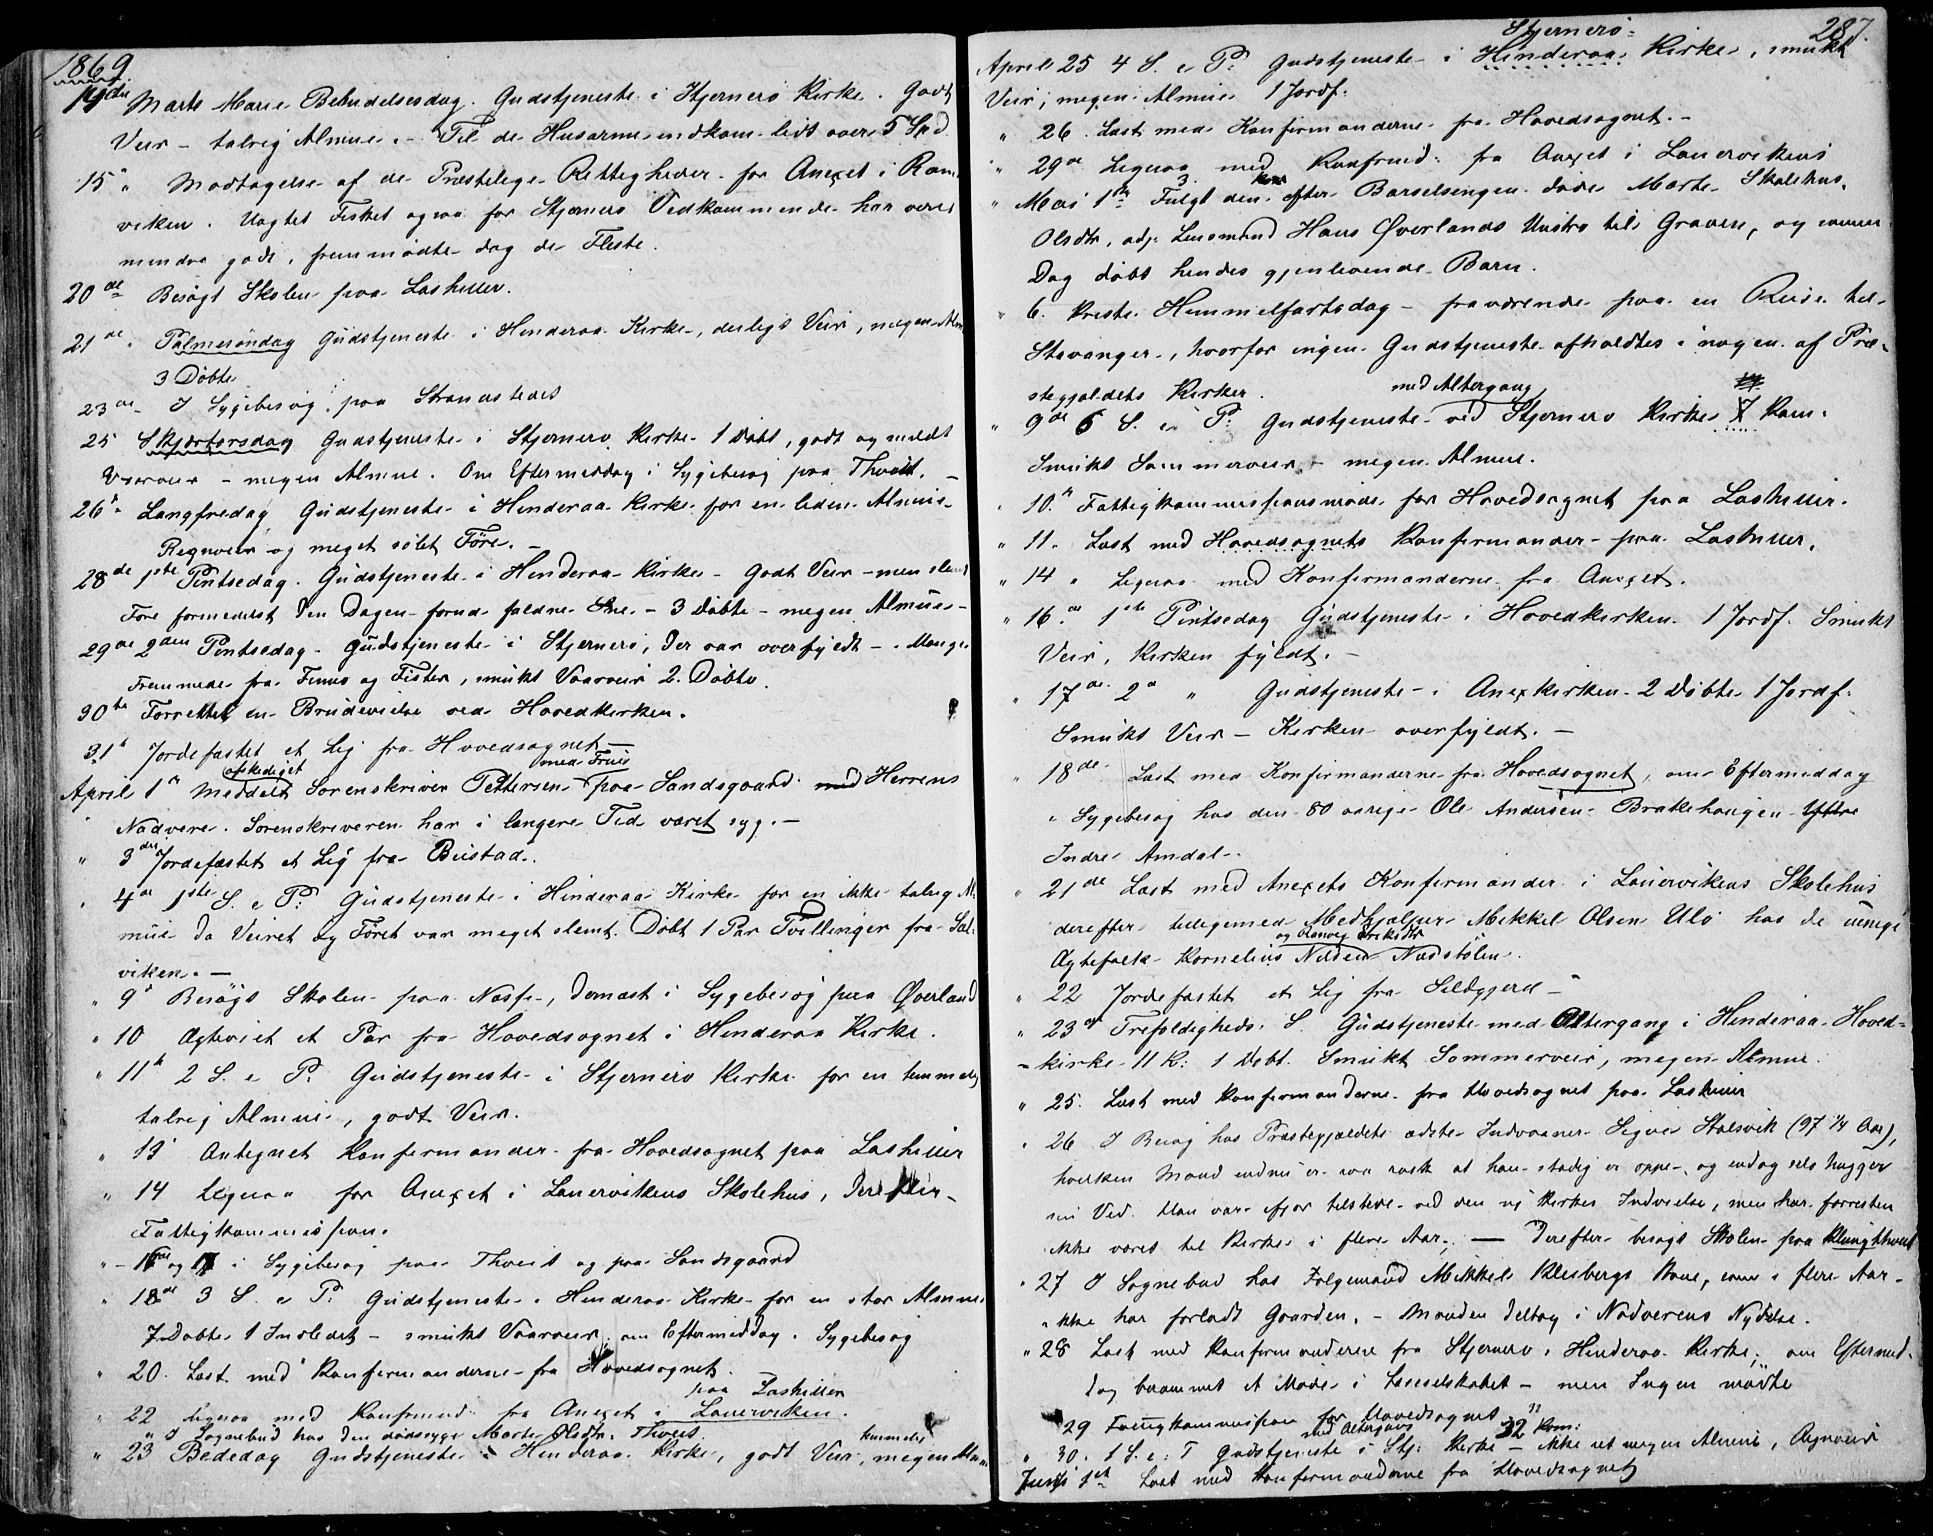 1869
14de Marts Marie Bebudelsesdag. Gudstjeneste i Stjernerø Kirke. Godt
Veir – talrig Almue. – Til de Husarme indkom lidt over 5 Spd.
15 " Modtagelse af de Præstelige Rettigheder for Anexet i Ram-
viken. Uagtet Fisket ogsaa for Stjernerø Vedkommende har været
mindre godt, fremmødte dog de Fleste.
20de Besøgt Skolen paa Lashuur.
21de " Palmesöndag Gudstjeneste i Hinderaa Kirke, deiligt Veir, megen Alm
3 Döbte
23de I Sygebesøg paa Strandstedet
25 Skjærtorsdag Gudstjeneste i Stjernerø Kirke 1 Döbt, godt og mildt
Vaarveir – megen Almue. Om Eftermiddag i Sygebesøg paa Thveit. –
26de Langfredag Gudstjeneste i Hinderaa Kirke for en liden Almue –
Regnveir og meget sølet Føre. –
28de 1ste Pintsedag. Gudstjeneste i Hinderaa Kirke – Godt Veir – men slemt
Føre formedelst den Dagen forud faldne Sne. – 3 Döbte – megen Almue –
29de 2den Pintsedag. Gudstjeneste i Stjernerø, der var overfyldt – Mange
Fremmede fra Finnø og Fister, smukt Vaarveir 2 Döbte
30te Forrettet en Brudevielse ved Hovedkirken.
31te Jordfæstet et Lig fra Hovedsognet –
April 1ste meddelt afskediget Sorenskriver Pettersen med Frue paa Sandsgaard med Herrens
Nadvere. Sorenskriveren har i længere Tid været syg. –
" 3die Jordefæstet et Lig fra Bustad.
" 4de 1ste S. e. P. Gudstjeneste i Hinderaa Kirke for en ikke talrig Al-
mue da Veiret og Føret var meget slemt. Döbt 1 Par Tvillinger fra Sal-
viken. –
" 9de Besøgt Skolen paa Næsse, dernæst i Sygebesøg paa Øverland
" 10 Ægteviet et Par fra Hovedsognet i Hinderaa Kirke.
" 11te 2 S. e. P. Gudstjeneste i Stjernerø Kirke for en temmelig
talrig Almue, godt Veir.
" 13 Antegnet Konfirmander fra Hovedsognet paa Lashuur
" 14 Ligesaa for Anexet i Lauervikens Skolehus, derefter
Fattigkommission.
" 16de og 17 i Sygebesøg paa Thveit og paa Sandsgaard
" 18de 3 S. e. P. Gudstjeneste i Hinderaa Kirke for en stor Almue
7 Døbte 1 Indledet – smukt Vaarveir, om Eftermiddag i Sygebesøg
" 20. Læst med Konfirmanderne fra Hovedsognet
paa Lashuur
" 22 Ligesaa med Konfirmd. fra Anexet i Lauerviken.
" I Sognebud hos den dødssyge Marte Olsdtr. Thveit.
" 23 Bededag Gudstjeneste i Hinderaa Kirke, godt Veir, temmelig megen Almue
287.
Stjernerø
April 25 4 S. e. P. Gudstjeneste i Hinderaa Kirke, smukt
Veir, megen Almue 1 Jordf.
" 26. Læst med Konfirmanderne fra Hovedsognet. –
" 29de Ligesaa med Konfirmd. fra Anexet i Lauervikens
Skolehus.
" Mai 1ste 3 Fulgt den efter Barselsengen døde Marte
Olsdtr, adj. Lensmand Hans Øverlands Hustru til Graven, og samme
Dag døbt hendes gjenlevende Barn.
" 6. Kristi Himmelfartsdag – fraværende paa en Reise til
Stavanger, hvorfor ingen Gudstjeneste afholdtes i nogen af Præ-
stegjeldets Kirker.
" 9de 6 S. e. P. Gudstjeneste med Altergang ved Stjernerø Kirke 7 Kom.
Smukt Sommerveir – megen Almue.
" 10. Fattigkommissionsmøde for Hovedsognet paa Lashuur.
" 11. Læst med Hovedsognets Konfirmander paa Lashuur.
" 14 " Ligesaa med Konfirmanderne fra Anexet.
" 16de 1ste Pintsedag Gudstjeneste i Hovedkirken 1 Jordf. Smukt
Veir, Kirken fyldt. –
" 17de 2d " Gudstjeneste i Anexkirken 2 Døbte 1 Jordf.
Smukt Veir – Kirken overfyldt. –
" 18de Læst med Konfirmanderne fra Hovedsognet, om Eftermiddag
i Sygebesøg hos den 80 aarige Ole Andersen Brakehougen Yttre
Indre Amdal.
" 21de Læst med Anexets Konfirmander i Lauervikens Skolehus
derefter tilligemed Medhjælper Mikkel Olsen Ulø hos de uenige
Ægtefolk Kornelius Nilsen og Eriksdtr Nødstølen.
" 22 Jordefæstet et Lig fra Sildgjerd –
" 23de Trefoldigheds S. Gudstjeneste med Altergang i Hinderaa Hoved-
kirke 11 K. 1 Døbt. Smukt Sommerveir, megen Almue.
" 25. Læst med Konfirmanderne fra Hovedsognet paa Lashuur
" 26 I Besøg hos Præstegjældets ældste Indvaaner Sigve Stølsvik (97 1/4 Aar),
hvilken Mand endnu er saa rask at han stadig er oppe og endog selv hugger
sin Ved. Han var ifjor tilstede ved den ny Kirkes Indvielse, men har forresten
ikke været til Kirke i flere Aar. — Derefter besøgt Skolen paa Klungthveit
" 27 I Sognebud hos Følgemand Mikkel Klesbergs Kone, som i flere Aar
ikke har forladt Gaarden. – Manden deltog i Nadverens Nydelse.
" 28 Læst med Konfirmanderne fra Stjernerø i Hinderaa Kirke, om Eftermid-
dag berammet et Møde i Læseselskabet – men Ingen mødte
" 29 Fattigkommission for Hovedsognet
" 30. 1 S. e. T Gudstjeneste med Altergang i Stj. Kirke 32 Kom. – ikke ret megen Almue, Regnveir
Juni 1ste Læst med Konfirmanderne fra Hovedsognet